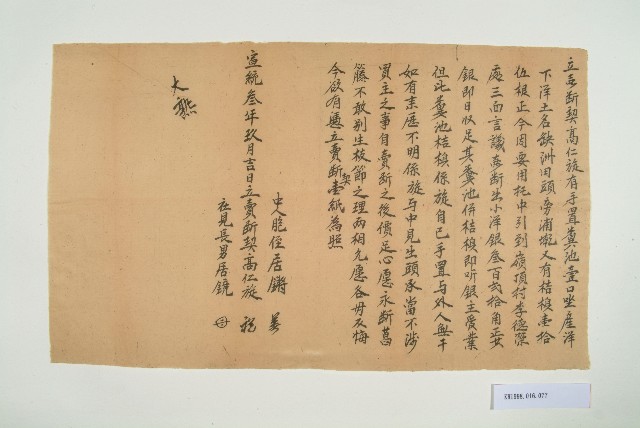 立賣斷契高仁旋有手置糞池壹口坐產洋
下洋土名缺洲田頭旁浦墘又有桔梭壹拾
伍根正今因要用托中引到嶺頂村李德榮
處三面言議賣斷出小洋銀叁百弍拾角正其
銀即日收足其糞池併桔梭即听銀主爰業
但此糞池桔梭係旋自己手置与外人無干
如有来歷不明係旋与中見生頭承當不涉
買主之事自賣断之後價足心愿永断葛
籐不敢别生枝節之理两相允愿各毋反悔
今欲有憑立賣断契壹紙為照
中人胞侄居鏘
在見長男居鏡
宣統叁年玖月吉日立賣斷契高仁旋
大熊
KN1998.016.077